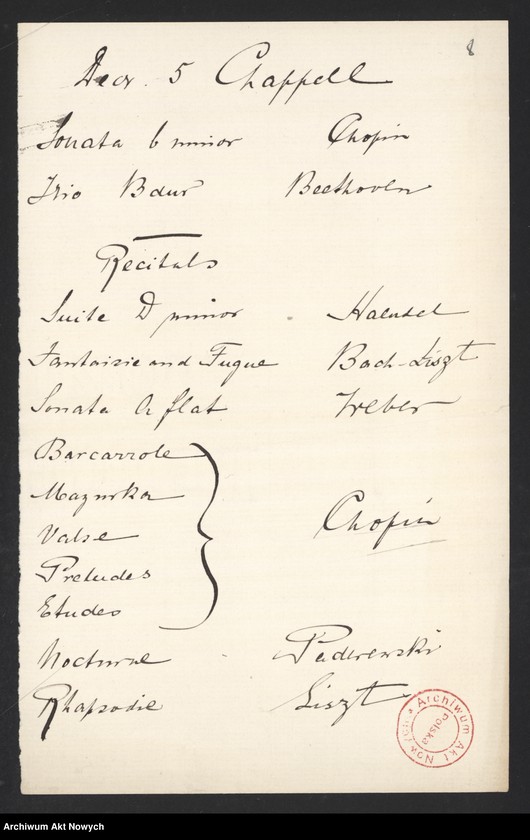 8
Decr. 5 Chappell
Sonata b minor Chopin
Trio B dur Beethoven
Recitals
Suite D minor Haendel
Fantaisie and Fugue Bach-Liszt
Sonata A flat Weber
Barcarrole
Mazurka
Valse
Preludes
Etudes
Chopin
Nocturne Paderewski
Rhapsodie Liszt
Archiwum Akt Nowych
Polska
Archiwum Akt Nowych